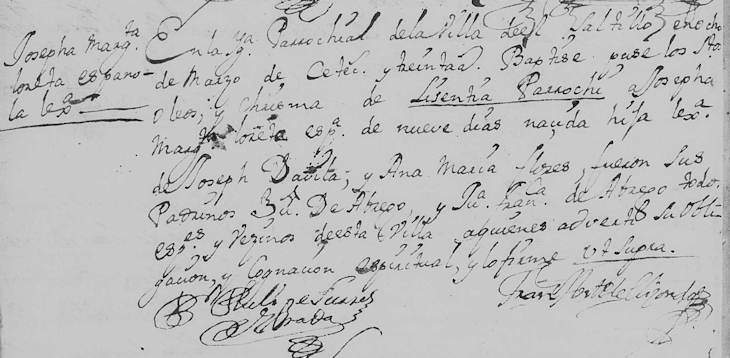 Josepha Marg.ta
loreta espano-
la lex.a
En la Yg.a Parrochial de la Villa de el Saltillo en ocho
de Marzo de Setec. y treinta Baptise puse los Sto.
oleos, y Chrisma de Lisentia Parrochi a Josepha
Marg.ta loreta esp.a de nueve dias nacida hija lex.a
de Joseph Davila, y Ana Maria flores, fueron sus
Padrinos De Abrego, y Fran.ca de Abrego todos
esp.es y Vezinos de esta Villa aquienes adverti su obli-
gacion, y Cognacion espiritual, y lo firme Vt Supra.
de Suares
Estrada